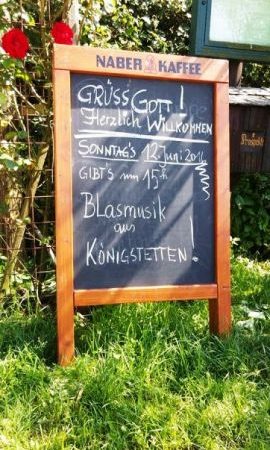 NABER KAFFEE
GRÜSS GOTT!
Herzlich WILLKOMMEN
SONNTAG'S 12. Juni 2016
GIBT'S um 15h
BLASMUSIK
aus
KÖNIGSTETTEN!